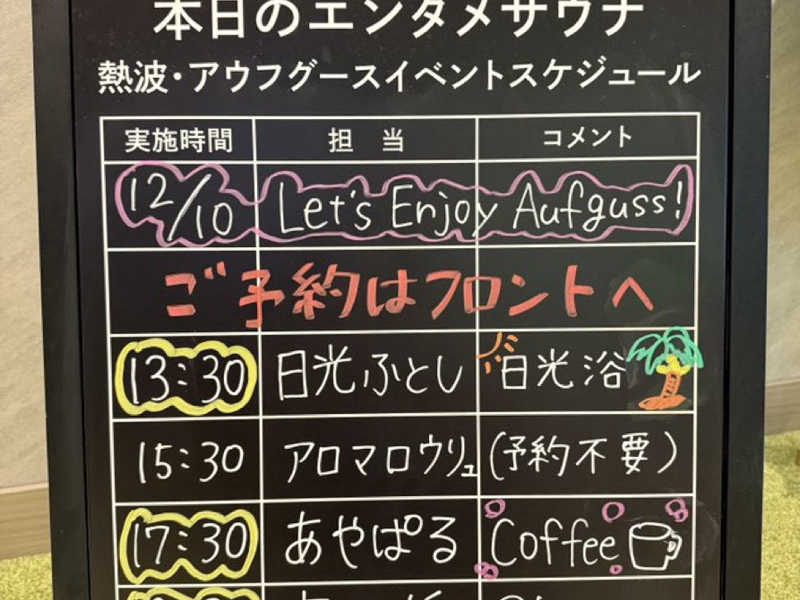 本日のエンタメサウナ
熱波・アウフグースイベントスケジュール
実施時間 担当 コメント
12/10 Let's Enjoy Aufguss!
ご予約はフロントへ
13:30 日光ふとし 日光浴
15:30 アロマロウリュ (予約不要)
17:30 あやぱる Coffee